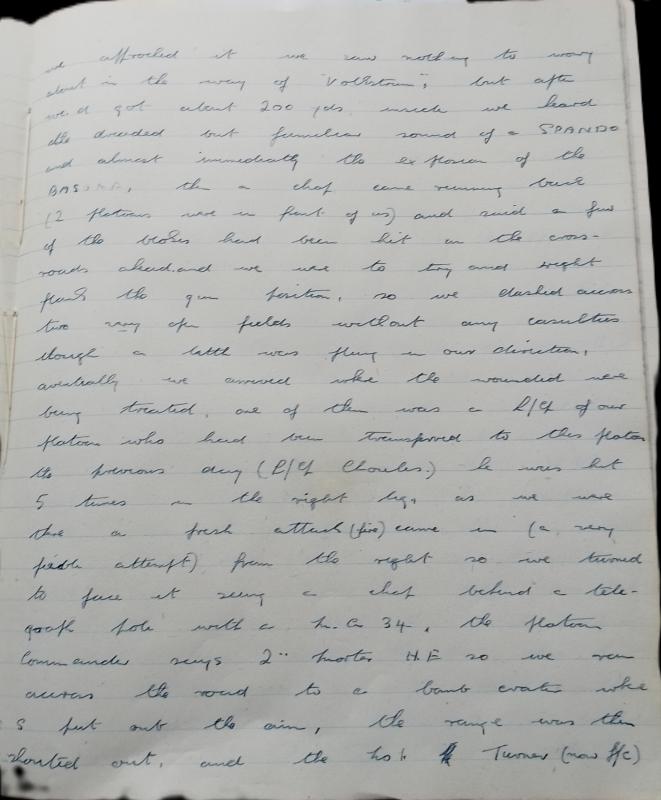 we approched it we saw nothing to worry
about in the way of "Volkstrum", but after
we'd got about 200 yds inside we heard
the dreaded but familiar sound of a SPANDO
and almost immediatly the explosion of the
then a chap came running back
(2 platoons were in front of us) and said a few
of the blokes had been hit on the cross-
roads ahead. and we were to try and right
flank the gun position, so we dashed across
two very open fields without any casulties
though a little was flung in our direction,
eventually we arrived where the wounded were
being treated, one of them was a L/Cpl of our
platoon who had been transferred to this platoon
the previous day (L/Cpl Choules.) he was hit
5 times in the right leg, as we were
there a fresh attack (fire) came in (a very
feeble attempt) from the right so we turned
to face it seeing a chap behind a tele-
graph pole with a M.G 34, the platoon
Commander says 2" morter H.E so we ran
across the road to a bomb crater where
S put out the aim, the range was then
shouted out, and the No 1 Turner (now S/C)